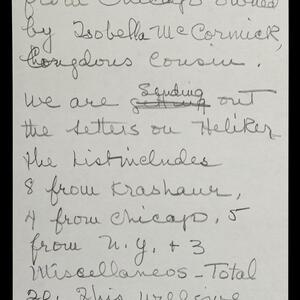 from Chicago owned
by Isobella McCormick,
Congdons Cousin.
We are sending out
the letters on Heliker
the list includes
8 from Krashaur,
4 from Chicago, 5
from N.Y. + 3
Miscellaneos - Total
20. This will give